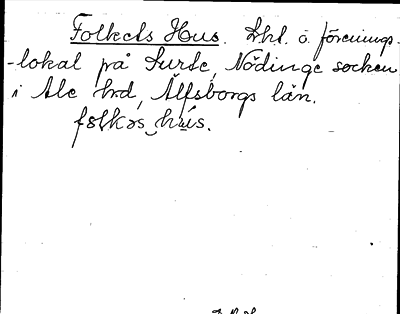 Folkets Hus. Lht. o. förenings-
-lokal på Surte, Nödinge socken
i Ale hrd, Älfsborgs län.
fȯlkəs‿hús.